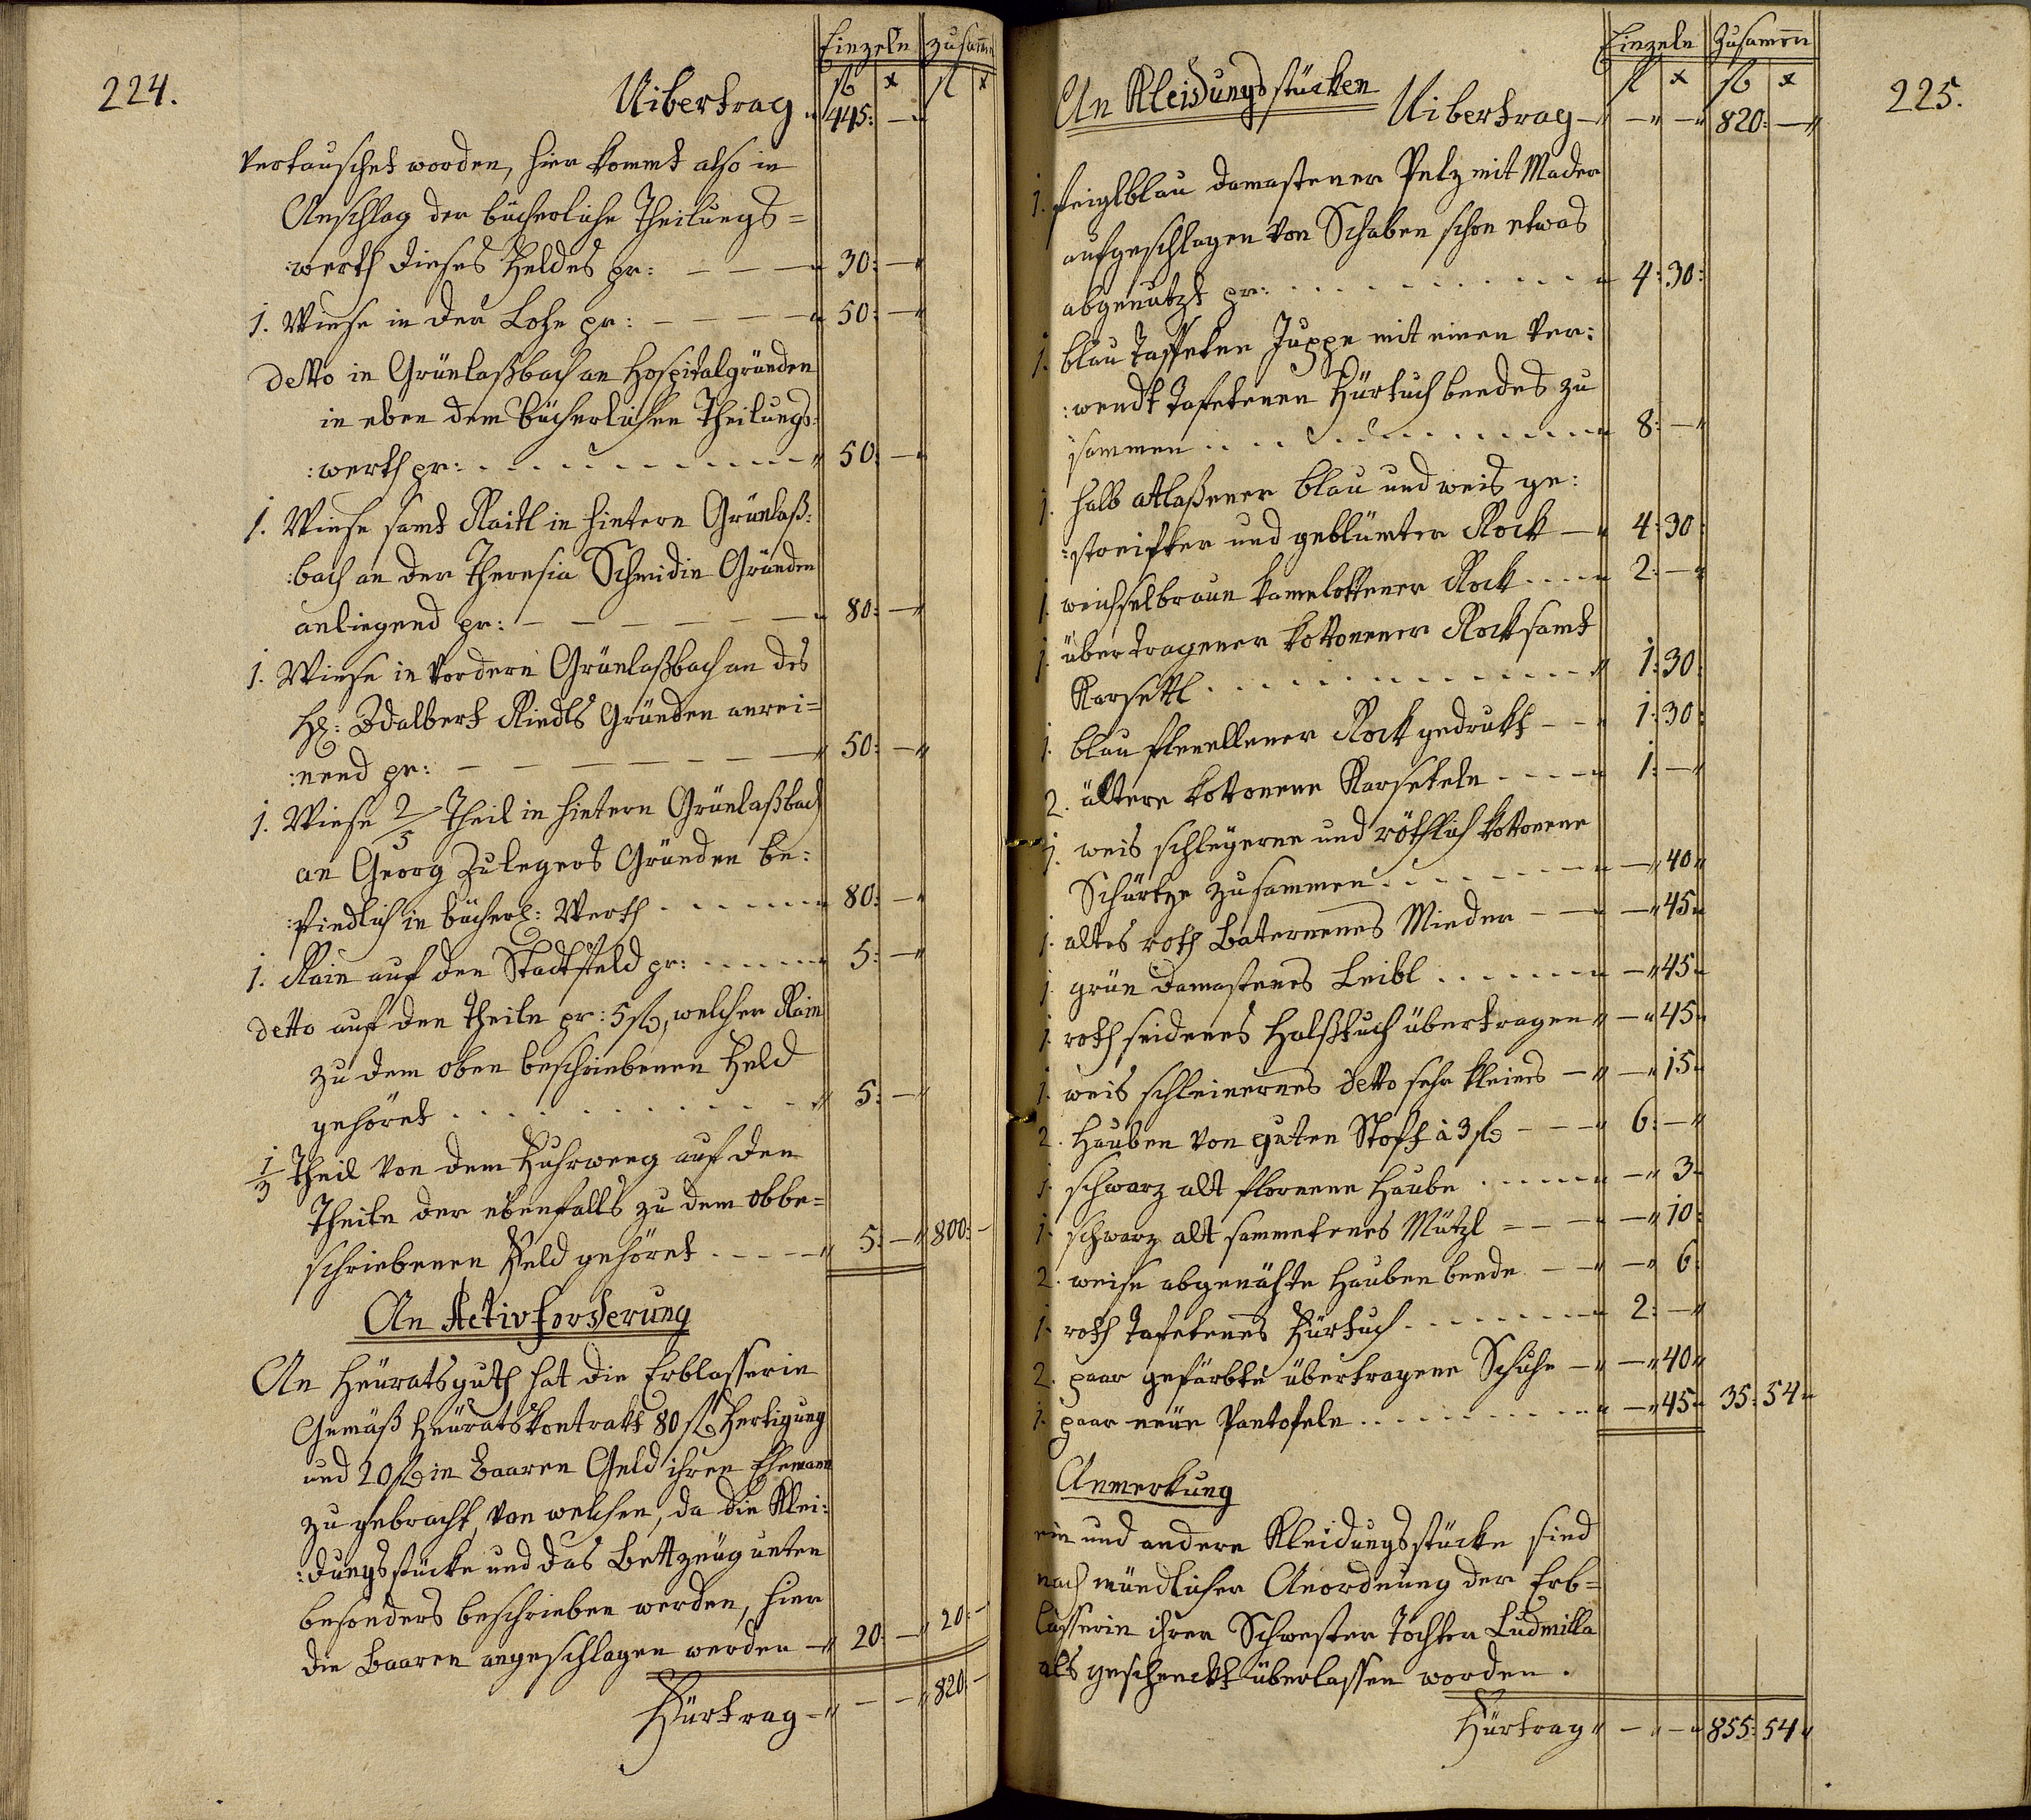 224.
Einzeln zusamn
Uibertrag fl x fl x
445: —
vertauschet worden, hier kommt also in
Anschlag der bücherliche Theilungs=
:werth dieses Feldes pr: — — — 30: —
1. Wiese in der Lohe pr: — — — — 50: —
detto in Grünlaßbach an Hospitalgründen
in eben dem bücherlichen Theilungs:
:werth pr: 50: —
1. Wiese samt Raitl in hintern Grünlaß:
:bach an der Theresia Schmidin Gründen
anliegend pr: — — — — — — 80: —
1. Wiese in vordern Grünlaßbach an des
H: Adalbert Riedls Gründen anrei=
:nend pr: — — — — — — — 50: —
1. Wiese 2/5 Theil in hintern Grünlaßbach
an Georg Zulegers Gründen be:
:findlich in bücherl: Werth 80: —
1. Rain auf den Stadtfeld pr: 5: —
detto auf den Theiln pr: 5 fl, welcher Rain
zu dem oben beschriebenen Feld
gehöret 5: —
1/3 Theil von dem Fuhrweeg auf den
Theiln der ebenfalls zu dem obbe=
schriebenen Feld gehöret 5: — 800: —
An Activforderung
An Heuratsguth hat die Erblasserin
Gemäß Heuratskontrakt 80 fl Fertigung
und 20 fl in Baaren Geld ihren Ehemann
zu gebracht, von welchen, da die Klei:
:dungsstücke und das Bettzeug unten
besonders beschrieben werden, hier
die Baaren angeschlagen werden — 20: — 20: —
Fürtrag — — — 820: —
225.
Einzeln Zusammen
An Kleidungsstücken
fl x fl x
Uibertrag — — — 820: —
1. feiglblau damastener Pelz mit Mader
aufgeschlagen von Schaben schon etwas
abgenutzt pr: 4: 30:
1. blau Taffeten Juppe mit einen ver:
:wendt Tafetenen Fürtuch beedes zu
sammen 8: —
1. halb atlaßener blau und weis ge:
:streifter und geblümter Rock — 4: 30:
1. weichselbraun kamelottener Rock 2: —
1. übertragener kottonener Rock samt
Karsettl 1: 30:
1. blau flenellener Rock gedrukt — — 1: 30:
2. ältere kottonene Karseteln 1: —
1. weis schleyerne und röthlich kottonene
Schürtze zusammen — 40
1. altes roth Baternenes Mieder — — 45
1. grün damastenes Leibl — 45
1. roth seidenes Halßtuch übertragen — 45
1. weis schleinernes detto sehr kleines — — 15
2. Hauben von guten Stoff à 3 fl — — — 6: —
1. schwarz alt florenene Haube — 3
1. schwarz alt sammetenes Mützl — 10:
2. weise abgenähte Hauben beede — — 6:
1. roth Tafetenes Fürtuch 2: —
2. paar gefärbte übertragene Schuhe — — 40
1. paar neüe Pantofeln — 45 35: 54
Anmerkung
ein und andere Kleidungsstücke sind
nach mündlicher Anordnung der Erb=
lasserin ihrer Schwester Tochter Ludmilla
als geschenckt überlassen worden.
Fürtrag — — 855: 54